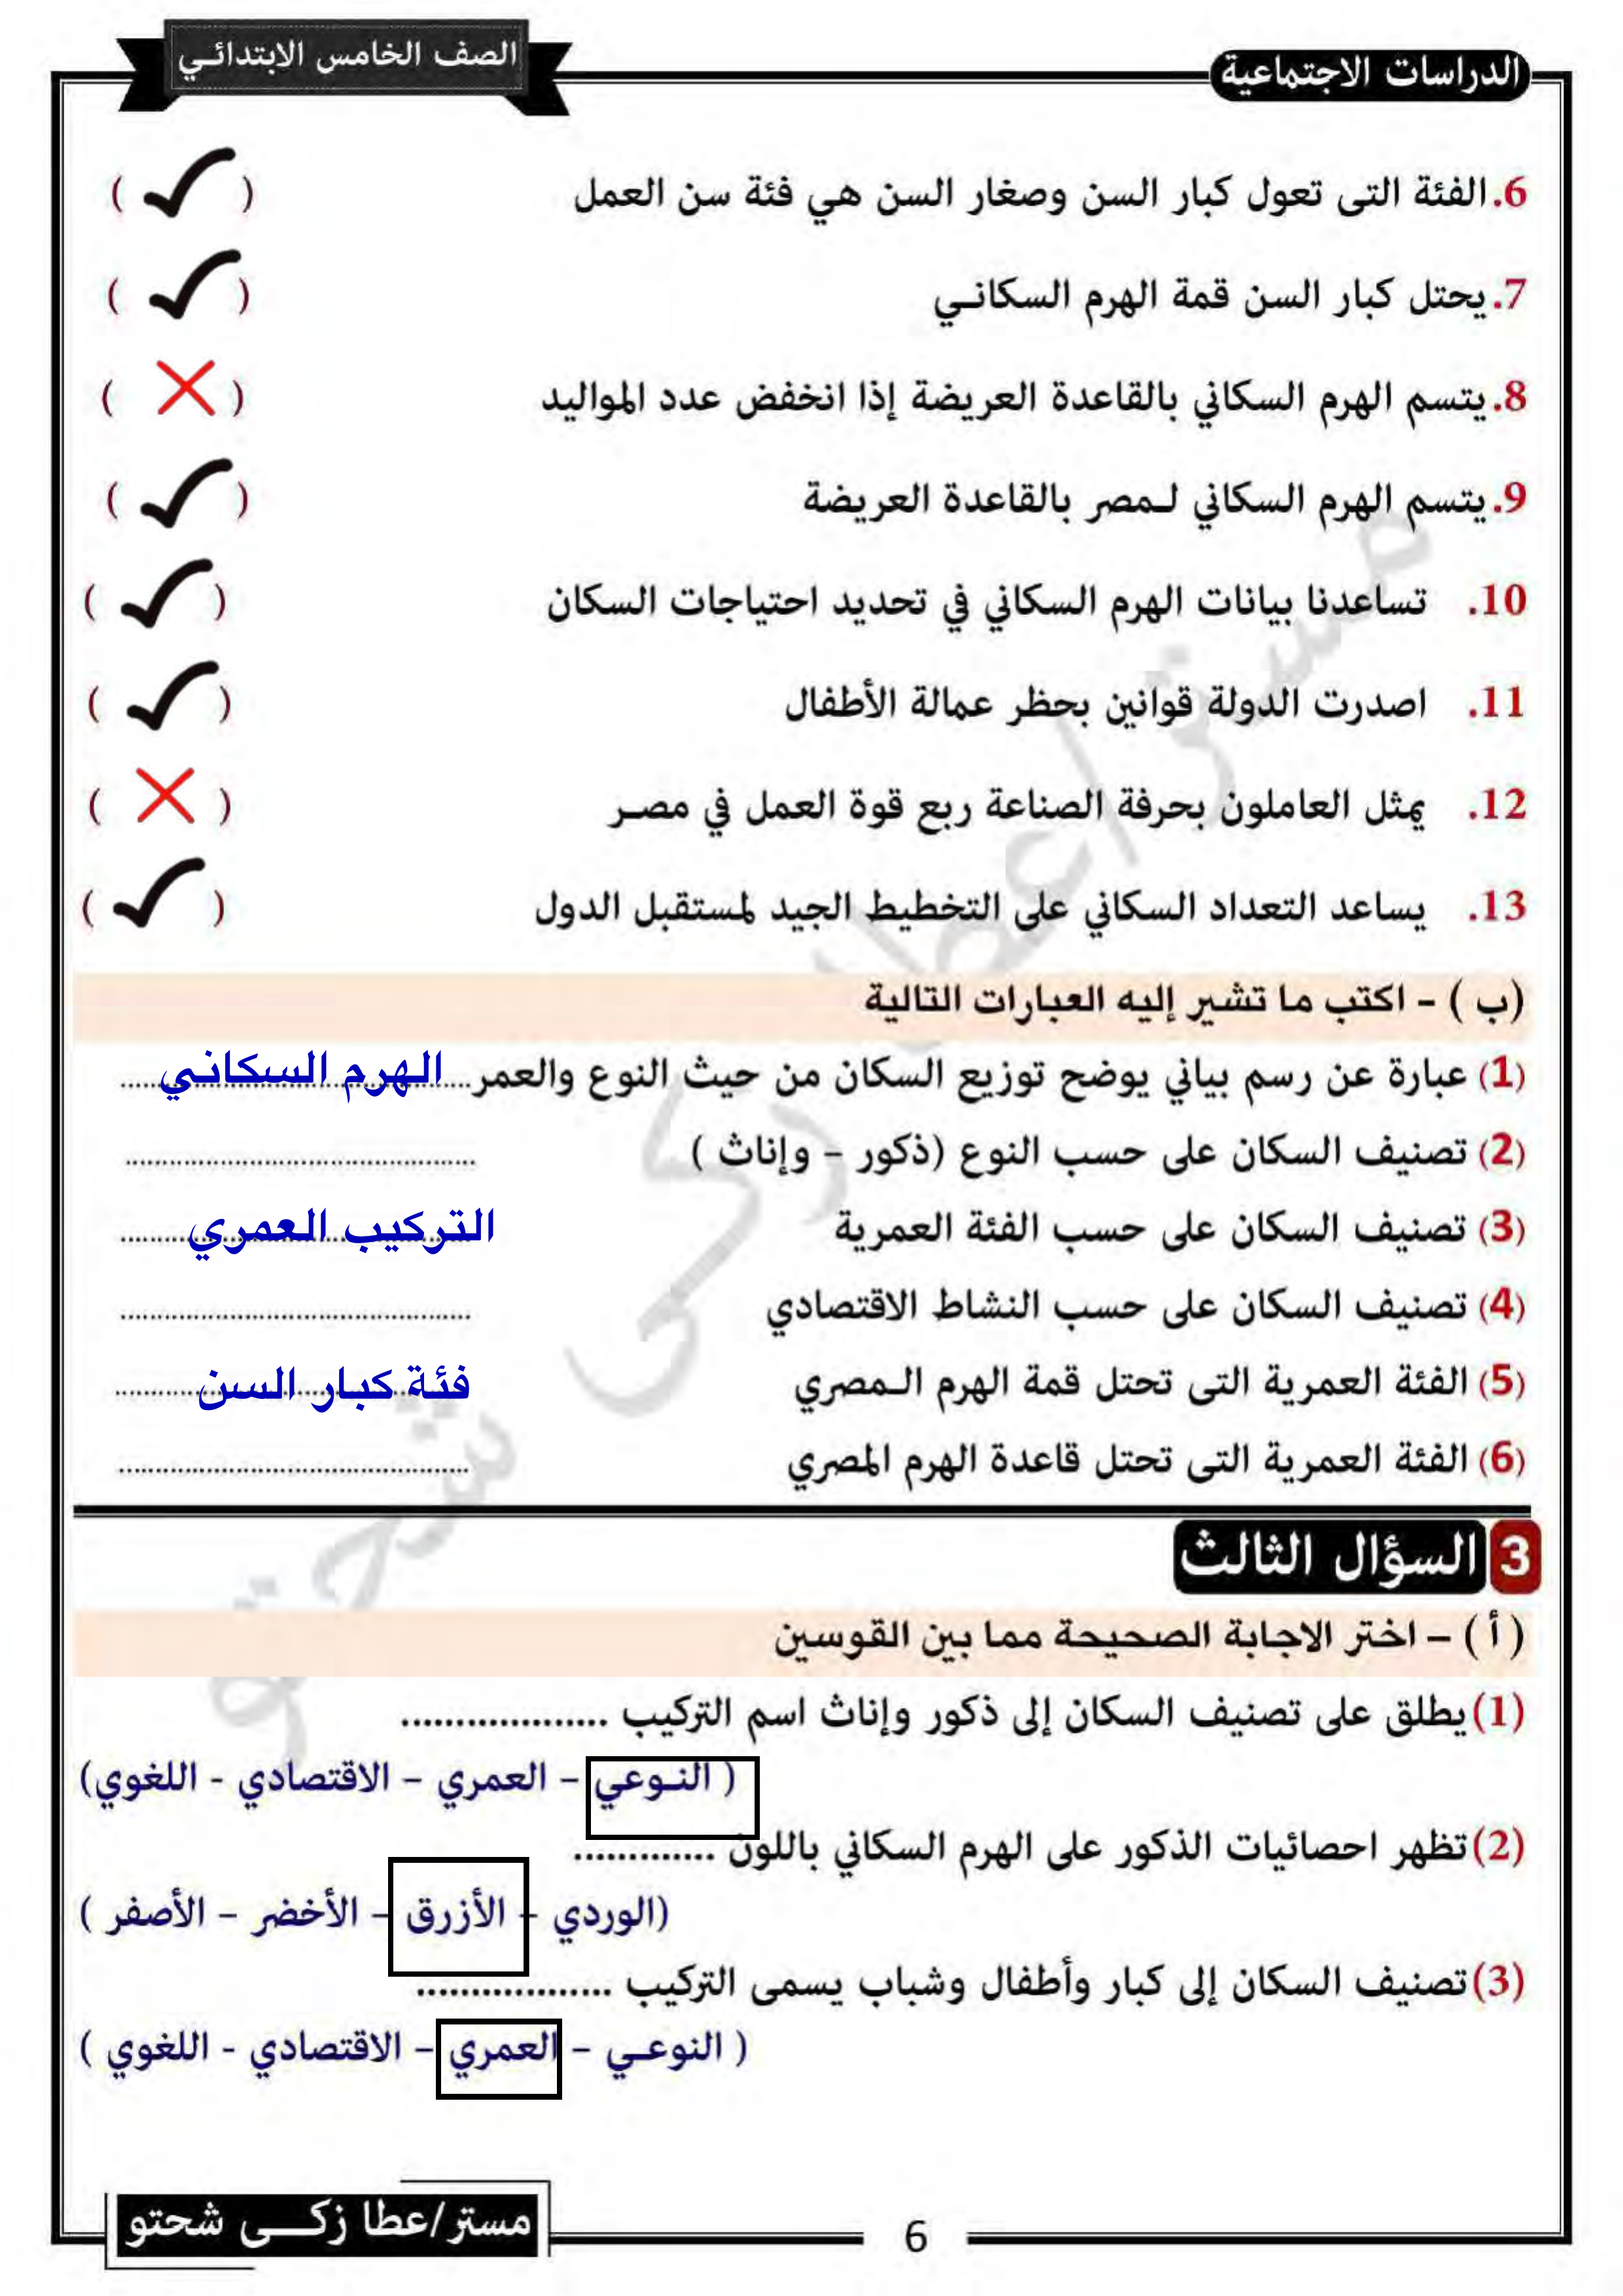 الدراسات الاجتماعية
الصف الخامس الابتدائي
6. الفئة التى تعول كبار السن وصغار السن هي فئة سن العمل ( ✓ )
7. يحتل كبار السن قمة الهرم السكاني ( ✓ )
8. يتسم الهرم السكاني بالقاعدة العريضة إذا انخفض عدد المواليد ( ✗ )
9. يتسم الهرم السكاني لمصر بالقاعدة العريضة ( ✓ )
10. تساعدنا بيانات الهرم السكاني في تحديد احتياجات السكان ( ✓ )
11. اصدرت الدولة قوانين بحظر عمالة الأطفال ( ✓ )
12. يمثل العاملون بحرفة الصناعة ربع قوة العمل في مصر ( ✗ )
13. يساعد التعداد السكاني على التخطيط الجيد لمستقبل الدول ( ✓ )
(ب ) – اكتب ما تشير إليه العبارات التالية
(1) عبارة عن رسم بياني يوضح توزيع السكان من حيث النوع والعمر ..... الهرم السكاني .....
(2) تصنيف السكان على حسب النوع (ذكور – وإناث ) ..........
(3) تصنيف السكان على حسب الفئة العمرية التركيب العمري .....
(4) تصنيف السكان على حسب النشاط الاقتصادي ..........
(5) الفئة العمرية التى تحتل قمة الهرم المصري فئة كبار السن .....
(6) الفئة العمرية التى تحتل قاعدة الهرم المصري ..........
3 السؤال الثالث
( أ ) – اختر الاجابة الصحيحة مما بين القوسين
(1) يطلق على تصنيف السكان إلى ذكور وإناث اسم التركيب ...................
( النوعي – العمري – الاقتصادي - اللغوي)
(2) تظهر احصائيات الذكور على الهرم السكاني باللون .............
(الوردي – الأزرق – الأخضر – الأصفر )
(3) تصنيف السكان إلى كبار وأطفال وشباب يسمى التركيب ..................
( النوعي – العمري – الاقتصادي - اللغوي )
مستر/عطا زكى شحتو
6
مستر/عطا زكى شحتو